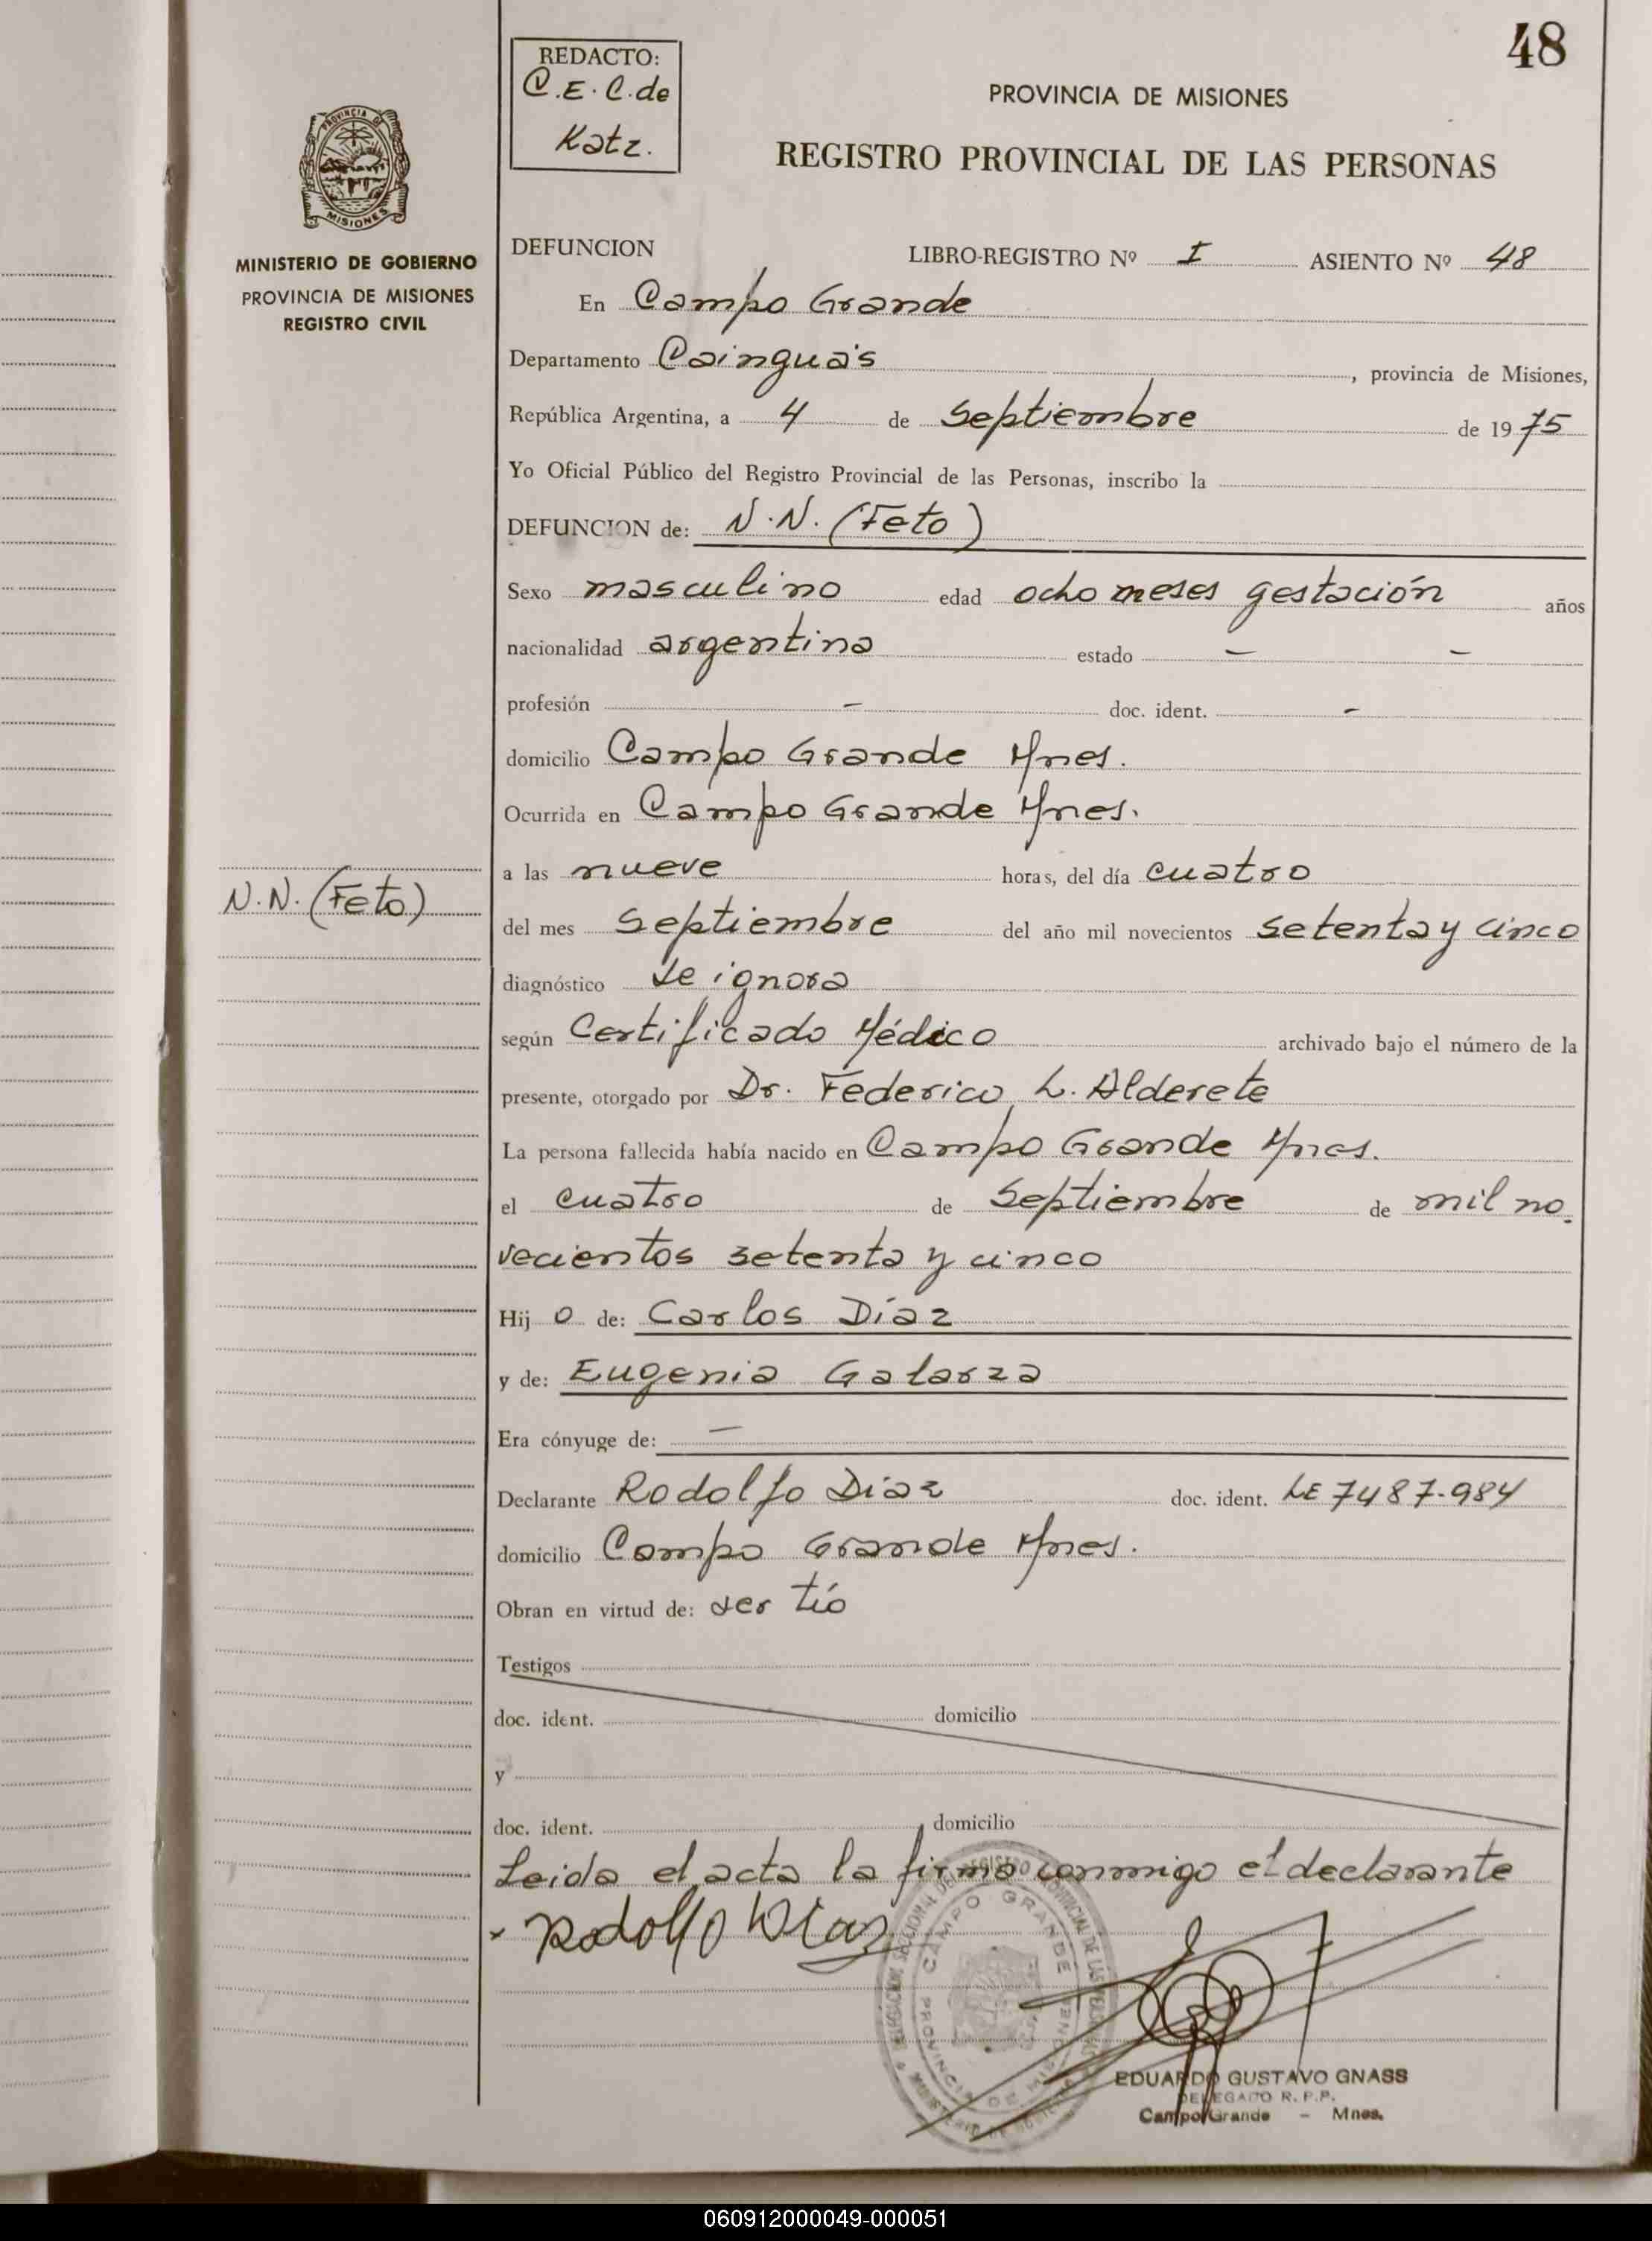 48
REDACTO:
C.E.C. de
Katz.
PROVINCIA DE MISIONES
REGISTRO PROVINCIAL DE LAS PERSONAS
PROVINCIA DE
MISIONES
MINISTERIO DE GOBIERNO
PROVINCIA DE MISIONES
REGISTRO CIVIL
DEFUNCION LIBRO-REGISTRO Nº I ASIENTO Nº 48
En Campo Grande
Departamento Cainguás, provincia de Misiones,
República Argentina, a 4 de Septiembre de 1975
Yo Oficial Público del Registro Provincial de las Personas, inscribo la
DEFUNCION de: N.N. (Feto)
Sexo masculino edad ocho meses gestación años
nacionalidad argentina estado — —
profesión — doc. ident. —
domicilio Campo Grande Mnes.
Ocurrida en Campo Grande Mnes.
a las nueve horas, del día cuatro
N.N. (Feto)
del mes Septiembre del año mil novecientos setenta y cinco
diagnóstico Se ignora
según Certificado Médico archivado bajo el número de la
presente, otorgado por Dr. Federico L. Alderete
La persona fallecida había nacido en Campo Grande Mnes.
el cuatro de Septiembre de mil no-
vecientos setenta y cinco
Hijo de: Carlos Díaz
y de: Eugenia Galarza
Era cónyuge de: —
Declarante Rodolfo Díaz doc. ident. LE 7487.984
domicilio Campo Grande Mnes.
Obran en virtud de: ser tío
Testigos
doc. ident. domicilio
y
doc. ident. domicilio
Leida el acta la firma conmigo el declarante
x Rodolfo Diaz
CAMPO GRANDE
PROVINCIA DE MISIONES
EDUARDO GUSTAVO GNASS
DELEGADO R.P.P.
Campo Grande – Mnes.
060912000049-000051